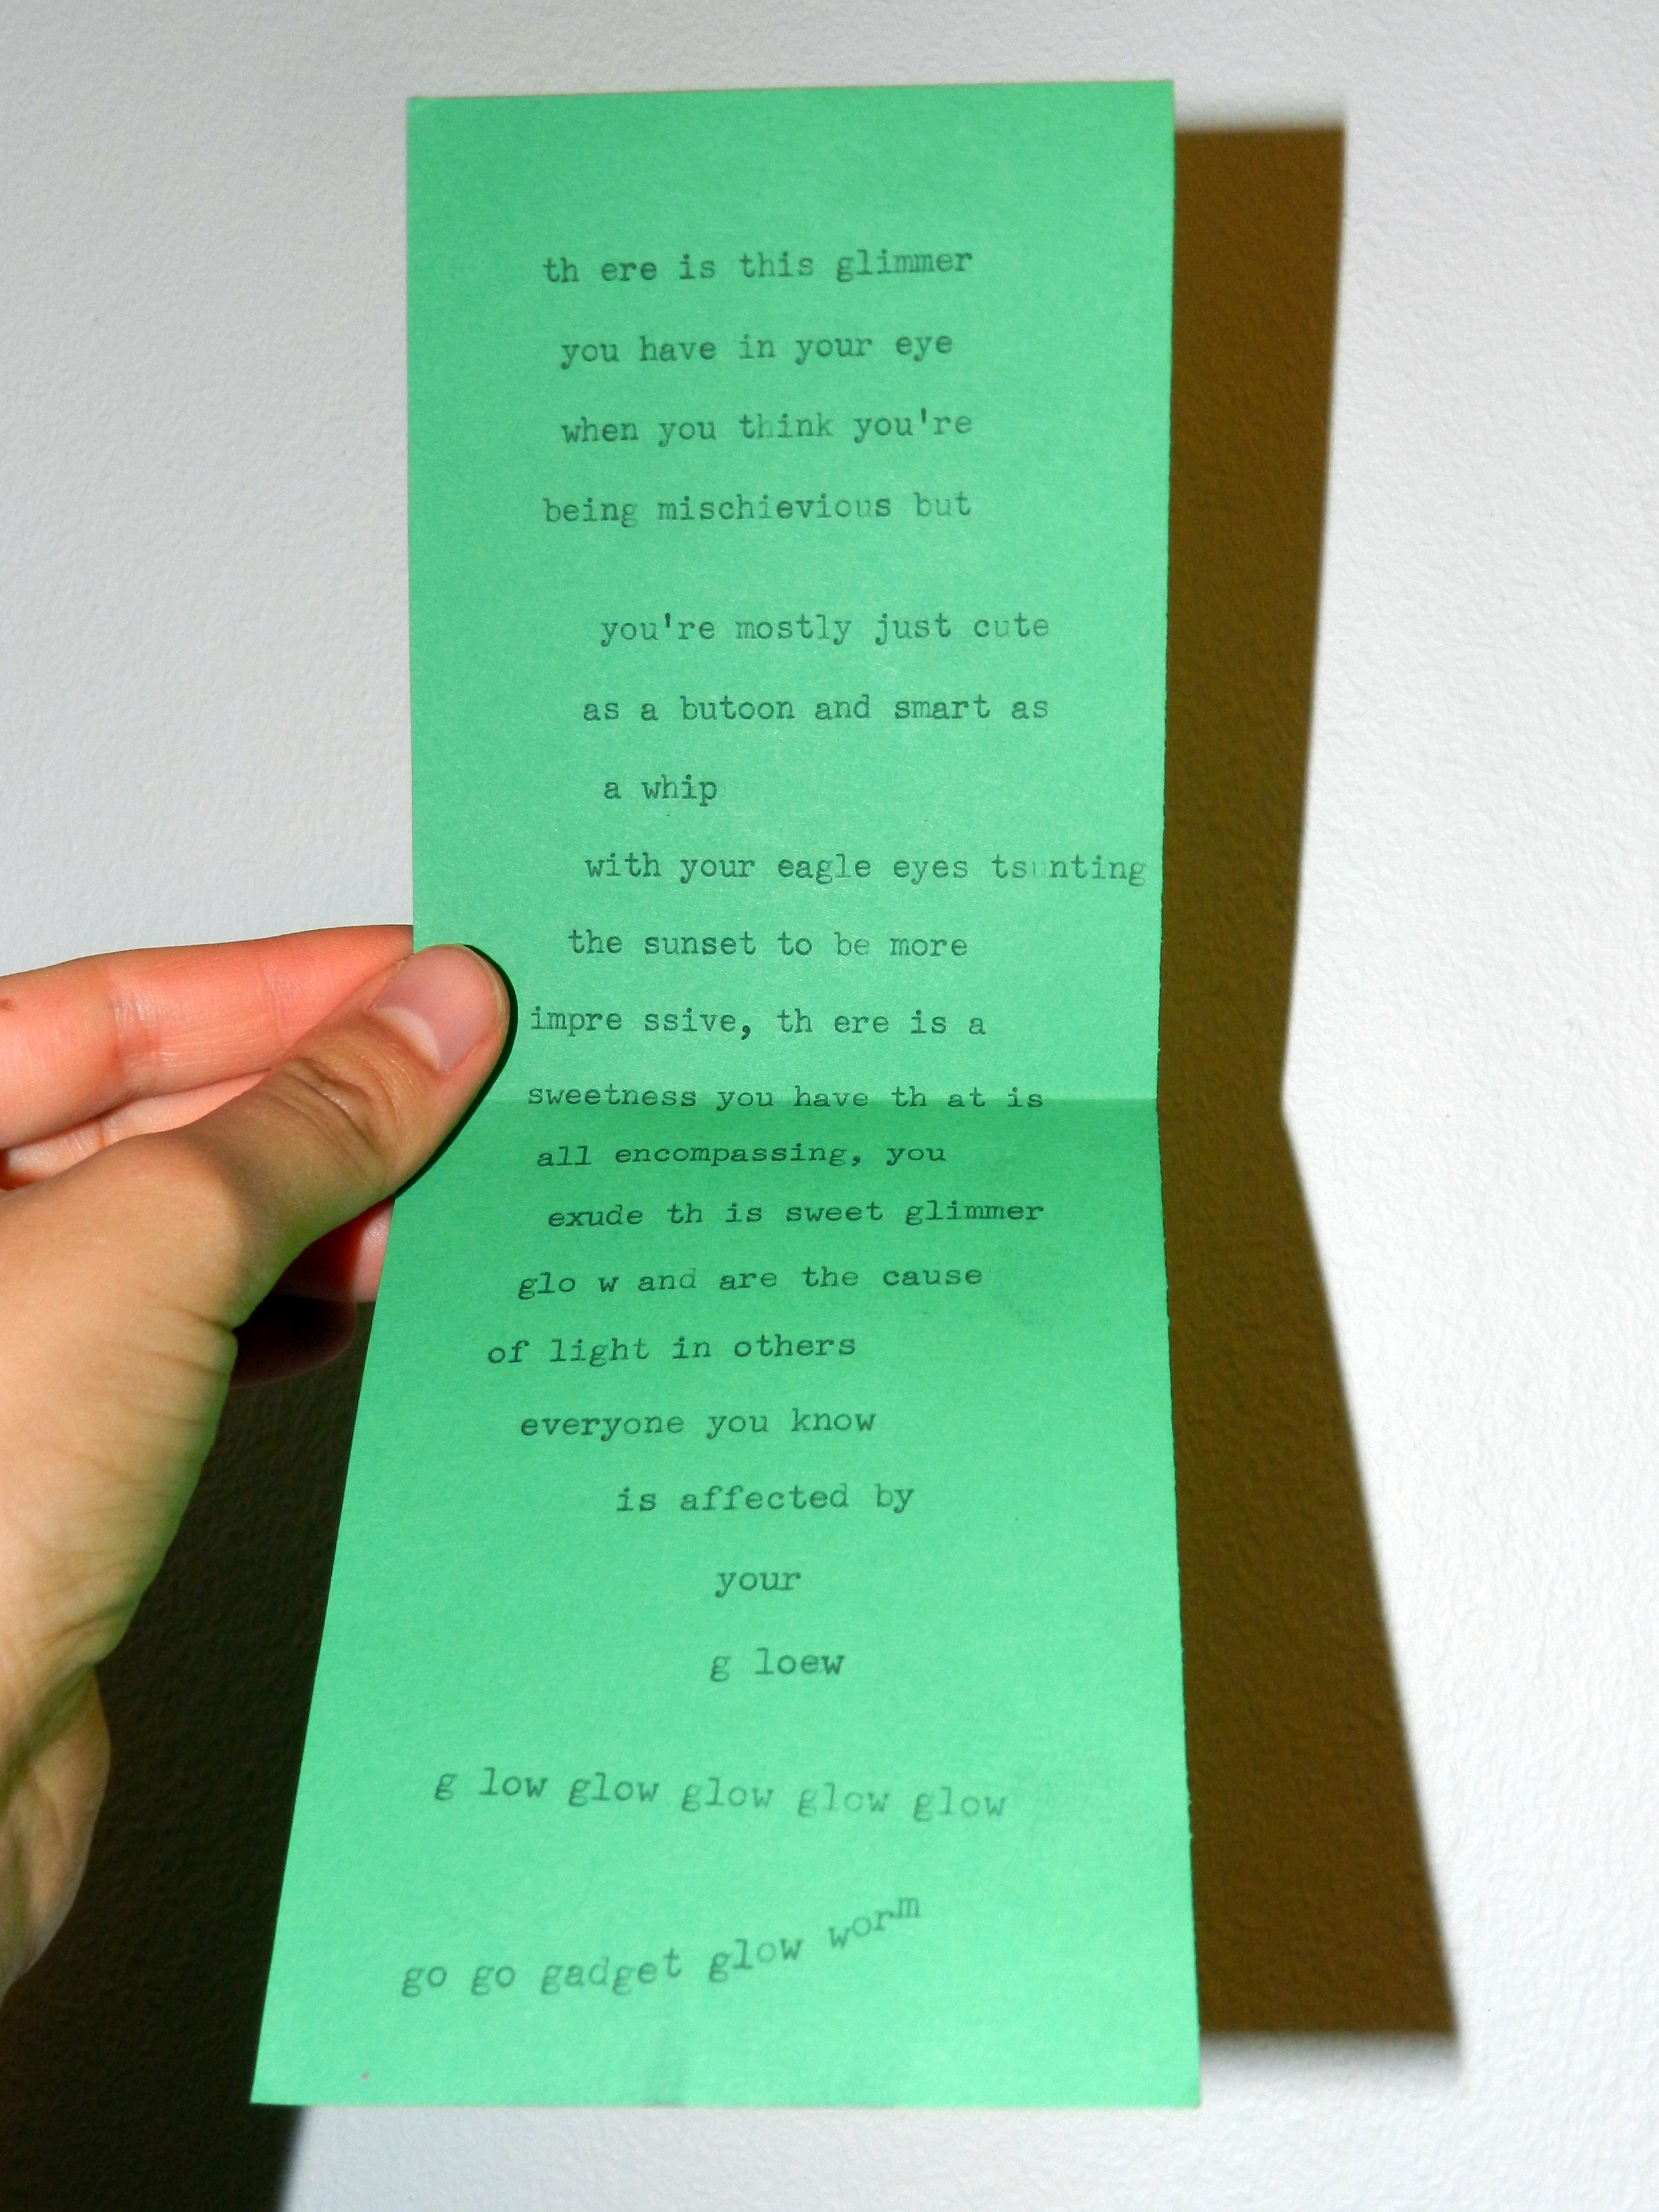 th ere is this glimmer
you have in your eye
when you think you're
being mischievious but
you're mostly just cute
as a butoon and smart as
a whip
with your eagle eyes
the sunset to be more
impre ssive, th ere is a
sweetness you have th at is
all encompassing, you
exude th is sweet glimmer
glo w and are the cause
of light in others
everyone you know
is affected by
your
g loew
g low glow glow glow glow
go go gadget glow worm